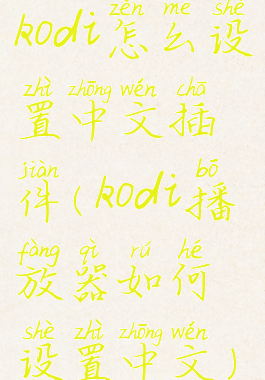 zěn me shè
kodi怎么设
zhì zhōng wén chā
置中文插
jiàn bō
件(kodi播
fàng qì rú hé
放器如何
shè zhì zhōng wén
设置中文)